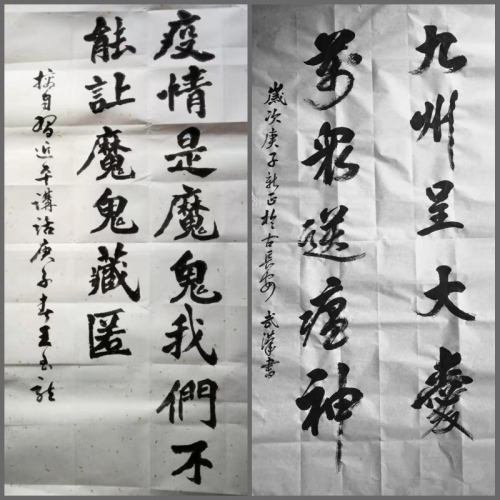 疫情是魔鬼我們不
能讓魔鬼藏匿
摘自習近平講話庚子春王玉龍
九州呈大愛
萬衆送瘟神
歲次庚子新正於古長安武漢書